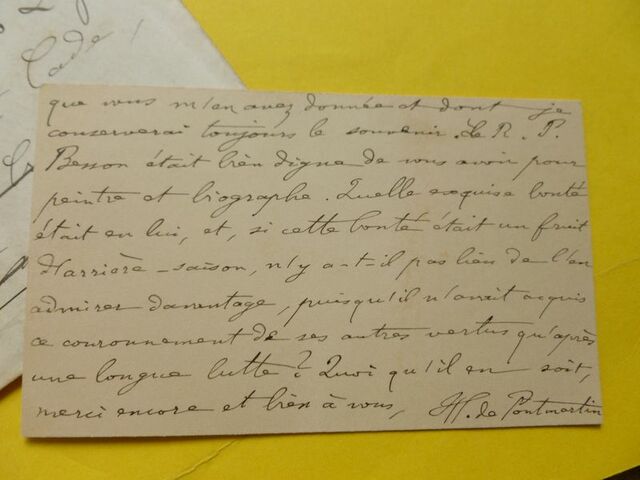 Cade!
que vous m'en avez donnée et dont je
conserverai toujours le souvenir. Le R. P.
Besson était bien digne de vous avoir pour
peintre et biographe. Quelle exquise bonté
était en lui, et, si cette bonté était un fruit
d'arrière-saison, n'y a-t-il pas lieu de l'en
admirer davantage, puisqu'il n'avait acquis
ce couronnement de ses autres vertus qu'après
une longue lutte? Quoi qu'il en soit,
merci encore et bien à vous, H. de Pontmartin